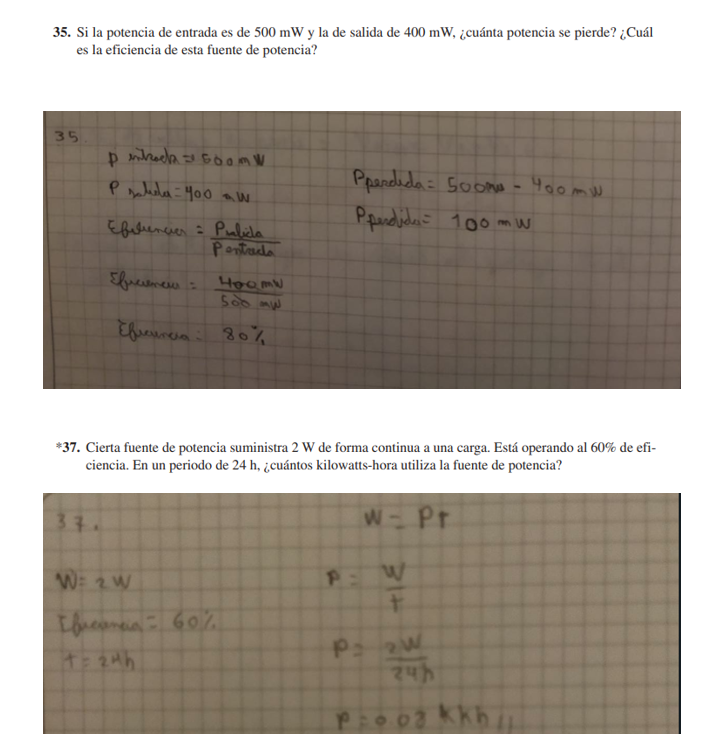 35. Si la potencia de entrada es de 500 mW y la de salida de 400 mW, ¿cuánta potencia se pierde? ¿Cuál
es la eficiencia de esta fuente de potencia?
35.
P entrada = 500 mW
P salida = 400 mW
Eficiencia = P salida
P entrada
Eficiencia = 400 mW
500 mW
Eficiencia = 80%
P perdida = 500 mW - 400 mW
P perdida = 100 mW
*37. Cierta fuente de potencia suministra 2 W de forma continua a una carga. Está operando al 60% de efi-
ciencia. En un periodo de 24 h, ¿cuántos kilowatts-hora utiliza la fuente de potencia?
37.
W = 2 W
Eficiencia = 60%
t = 24h
W = Pt
P = W
t
P = 2W
24h
P = 0.08